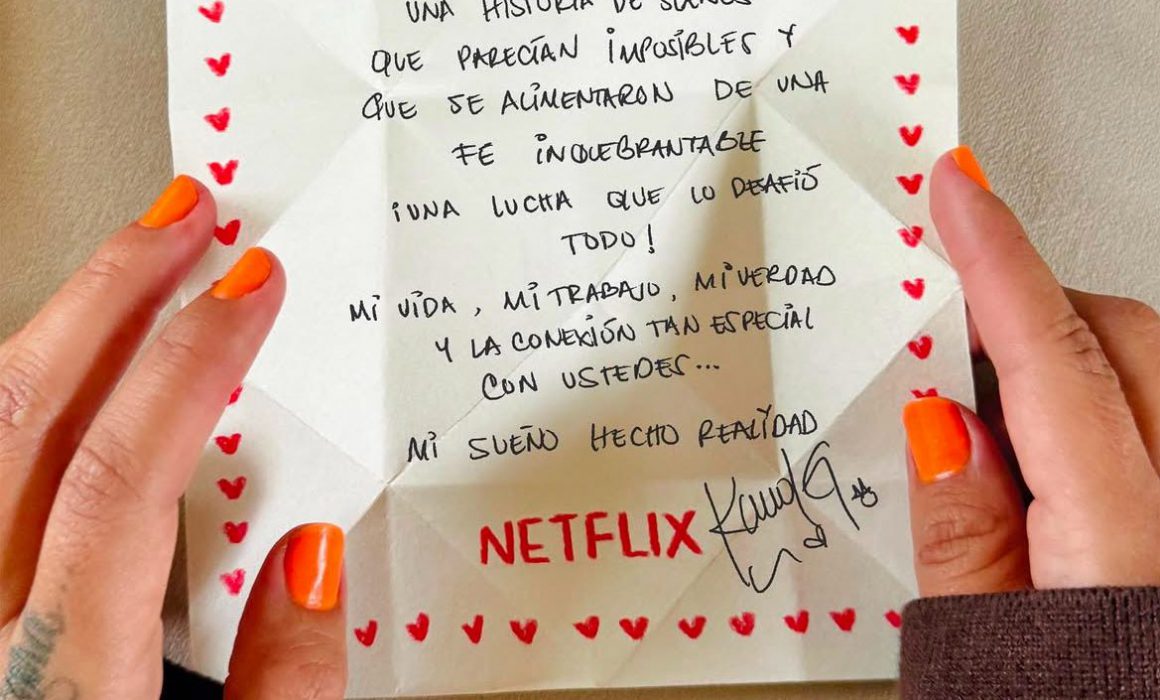 UNA HISTORIA DE SUEÑOS
QUE PARECÍAN IMPOSIBLES Y
QUE SE ALIMENTARON DE UNA
FE INQUEBRANTABLE
¡UNA LUCHA QUE LO DESAFIÓ
TODO!
MI VIDA, MI TRABAJO, MI VERDAD
Y LA CONEXIÓN TAN ESPECIAL
CON USTEDES...
MI SUEÑO HECHO REALIDAD
NETFLIX Karol G